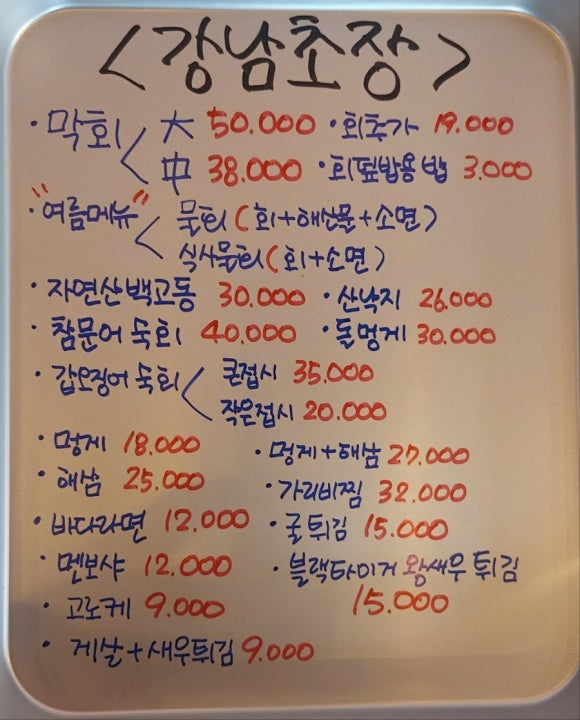 <강남초장>
· 막회 < 大 50.000 · 회추가 19.000
中 38.000 · 회덮밥용 밥 3.000
· "여름메뉴" < 물회 (회+해산물+소면)
식사물회 (회+소면)
· 자연산백고동 30.000 · 산낙지 26.000
· 참문어 숙회 40.000 · 돌멍게 30.000
· 갑오징어 숙회 < 큰접시 35.000
작은접시 20.000
· 멍게 18.000 · 멍게+해삼 27.000
· 해삼 25.000 · 가리비찜 32.000
· 바다라면 12.000 · 굴튀김 15.000
· 멘보샤 12.000 · 블랙타이거 왕새우 튀김
· 고로케 9.000 15.000
· 게살+새우튀김 9.000